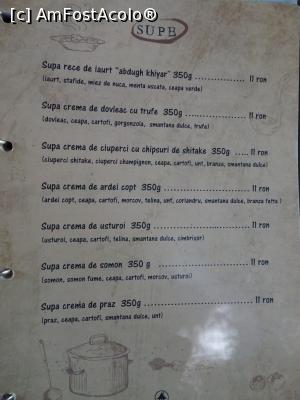 [c] AmFostAcolo®
SUPE
Supa rece de iaurt "abdugh khiyar" 350g .................. 11 ron
(iaurt, stafide, miez de nuca, menta uscata, ceapa verde)
Supa crema de dovleac cu trufe 350g ...................... 11 ron
(dovleac, ceapa, cartofi, gorgonzola, smantana dulce, trufe)
Supa crema de ciuperci cu chipsuri de shitake 350g ..... 11 ron
(ciuperci shitake, ciuperci champignon, ceapa, cartofi, unt, branza, smantana dulce)
Supa crema de ardei copt 350g ........................... 11 ron
(ardei copt, ceapa, cartofi, morcov, telina, unt, coriandru, smantana dulce, branza fetta )
Supa crema de usturoi 350g ............................... 11 ron
(usturoi, ceapa, cartofi, telina, smantana dulce, cimbrisor)
Supa crema de somon 350 g ............................. 11 ron
(somon, somon fume, ceapa, cartofi, morcov, usturoi)
Supa crema de praz 350g .................................. 11 ron
(praz, ceapa, cartofi, smantana dulce, unt)